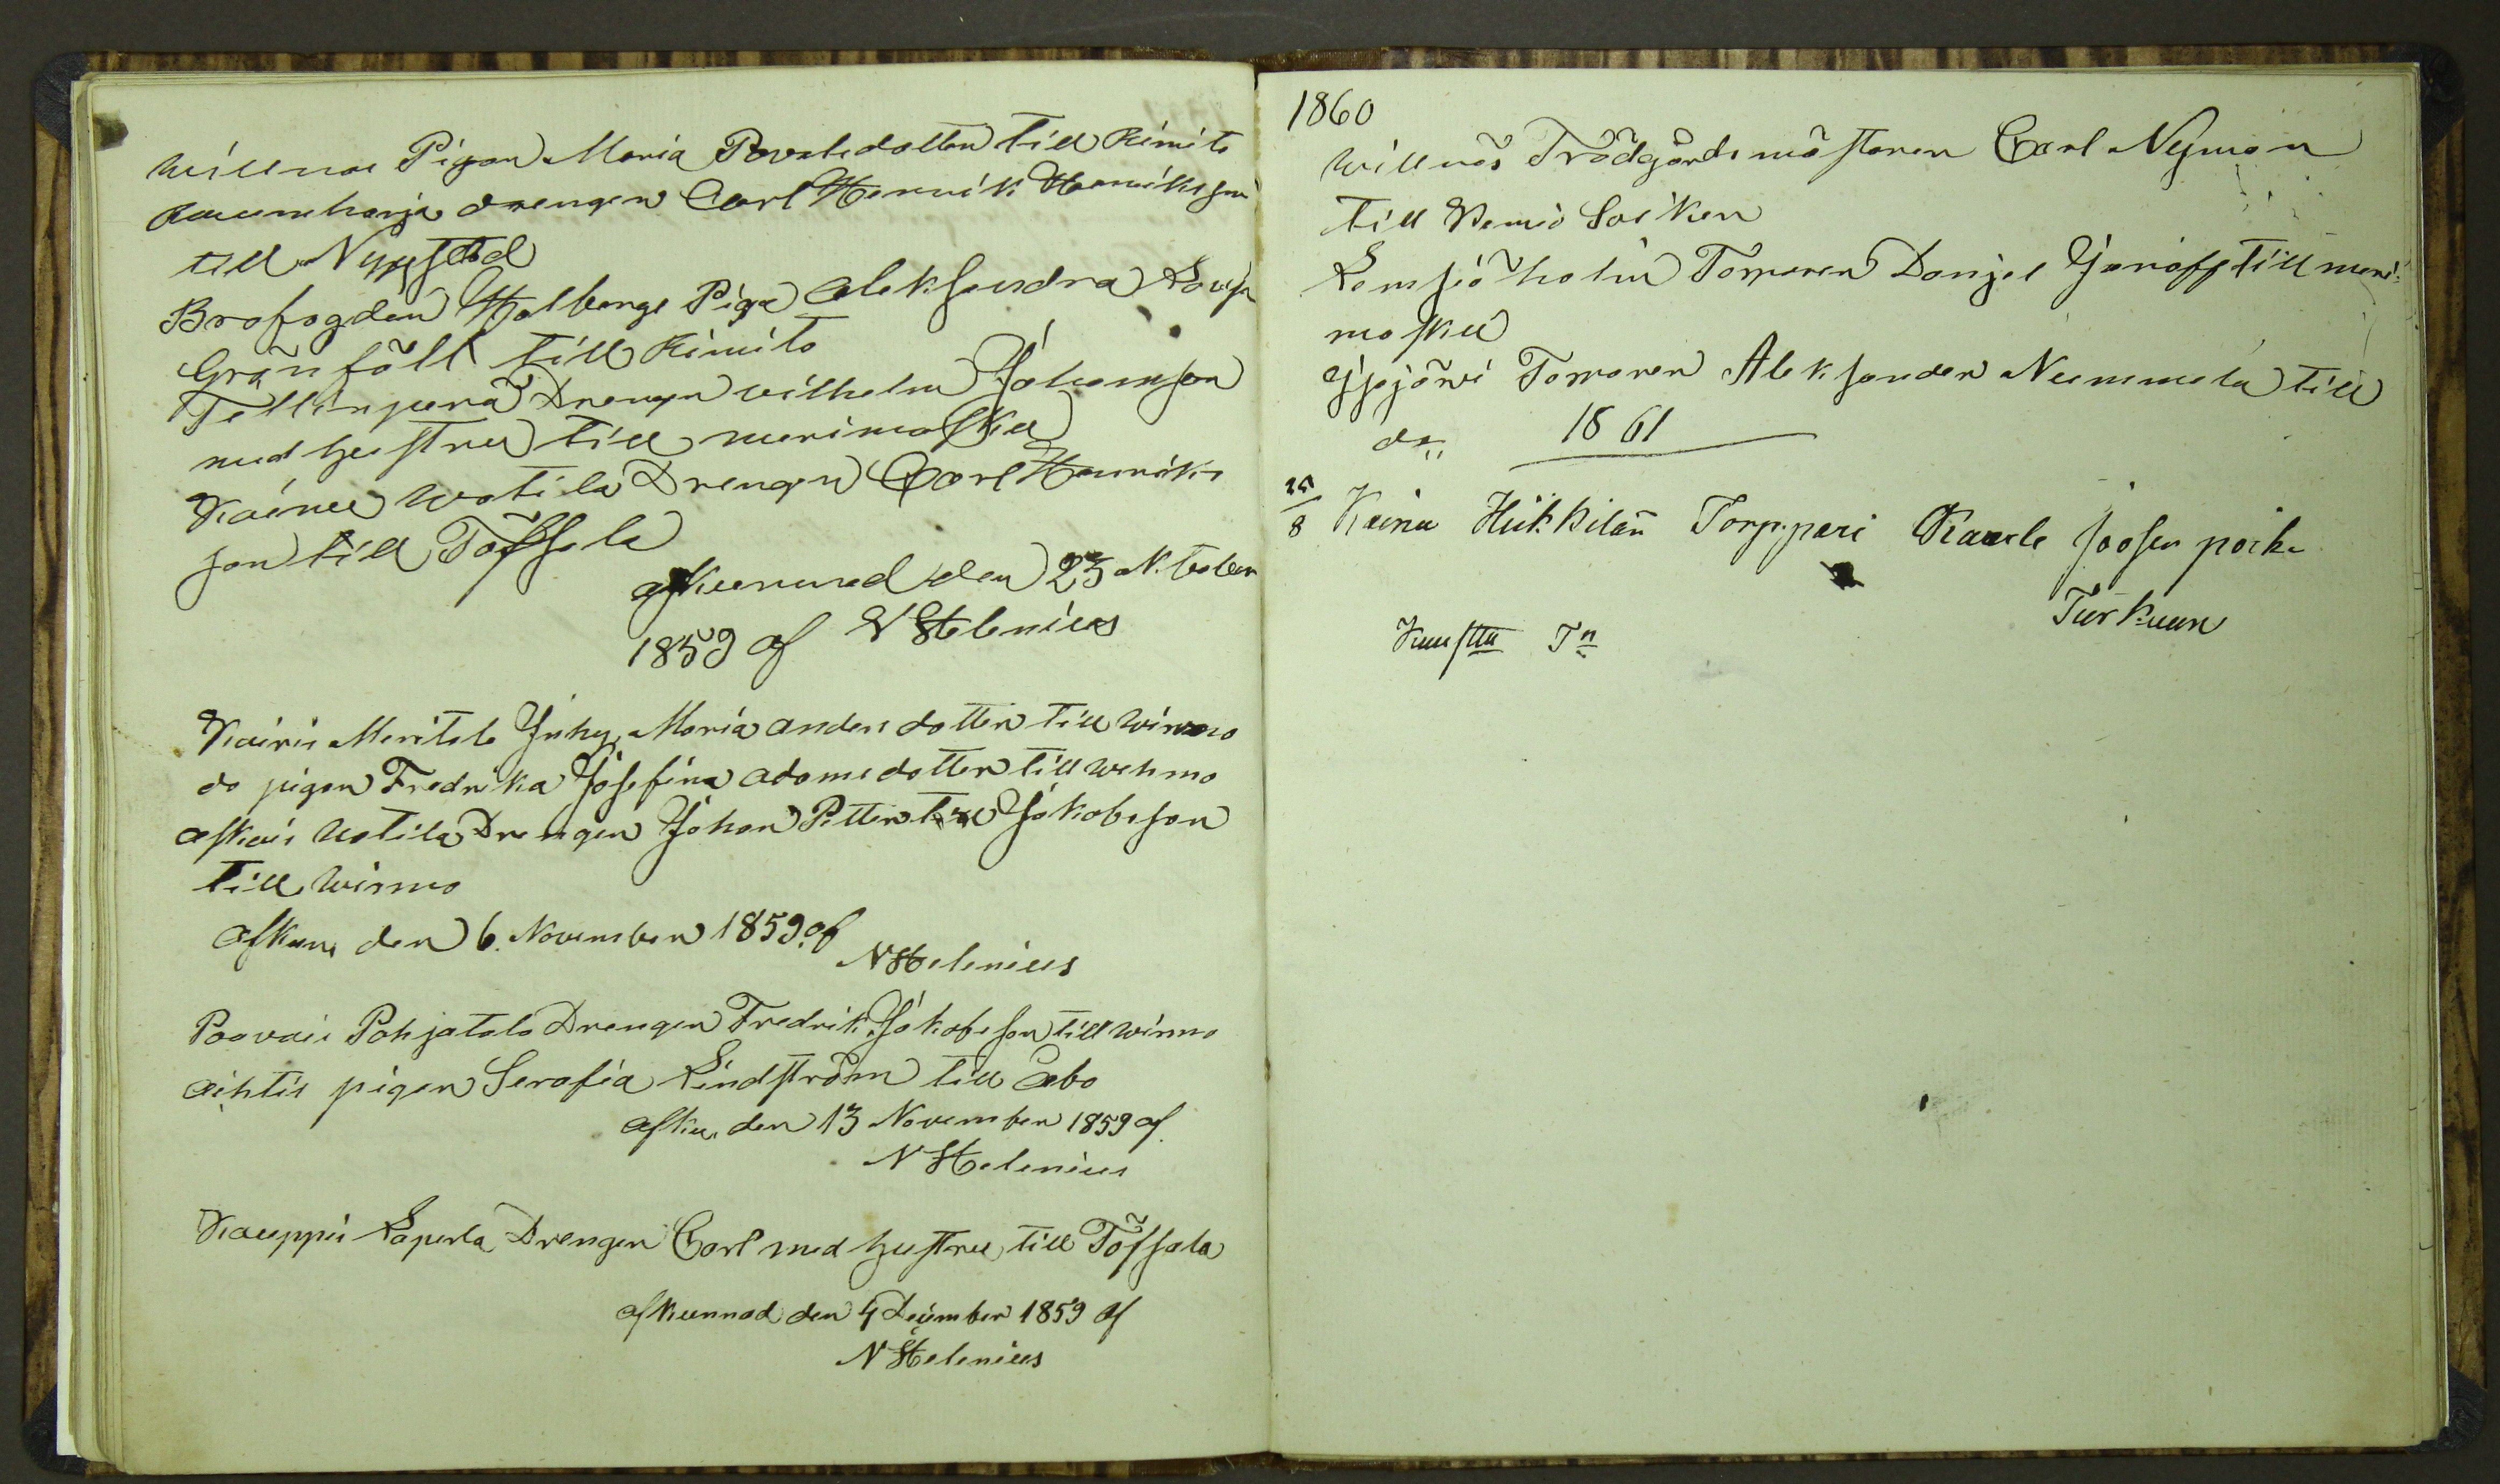 willnäs Pigan Maria Povalsdotter till Kimito
Raumeharja drengen Carl Henrik Henriksson
till Nystad
Brofogden Holbergs Piga Aleksandra Lovisa
Gränfält till Kimito
Tellinperä Drengen wilhelm Johansson
med hustru till merimasku
Kainu wotila Drengen Carl Henriks
son till Töffsala
afkunnad den 23 oktober
1859 af N Helenius
Kairis Meritalo Inhy Maria andersdotter till wirmo
do pigan Fredrika Josefina adamsdotter till wehmo
askais Uotila Drengen Johan Petter Jakobsson
till wirmo
afkun. den 6. November 1859 af
N Helenius
Poovais Pohjatalo Drengen Fredrik Jakobsson till wirmo
aihtis pigan Serafia Lindström till Åbo
afkun. den 13 November 1859 af
N Helenius
Kauppis Laperla Drengen Carl med hustru till Töfsala
afkunnad den 4 December 1859 af
N Helenius
1860
willnäs Trädgårdsmästaren Carl Nyman
till Pemio Socken
Lemsjöholm Torparen Danjel Granoff till meri-
masku
Ijsjärvi Torparen Aleksander Nummela till
do
1861
25/8 Kainu Heikkilän Torppari Kaarle Joosen poika
Turkuun
Kuustu Tn